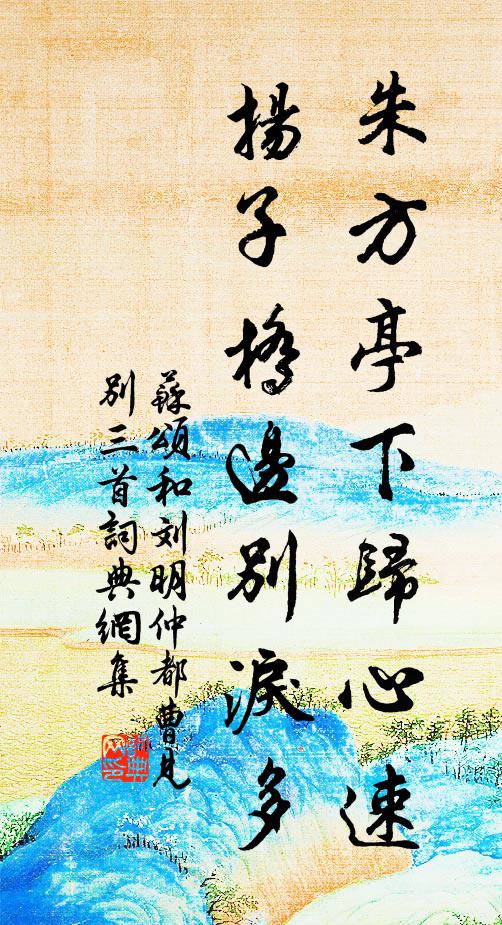 朱方亭下歸心速
揚子橋邊別淚多
蘇頌和刘明仲都曹見
別三首詞典網集